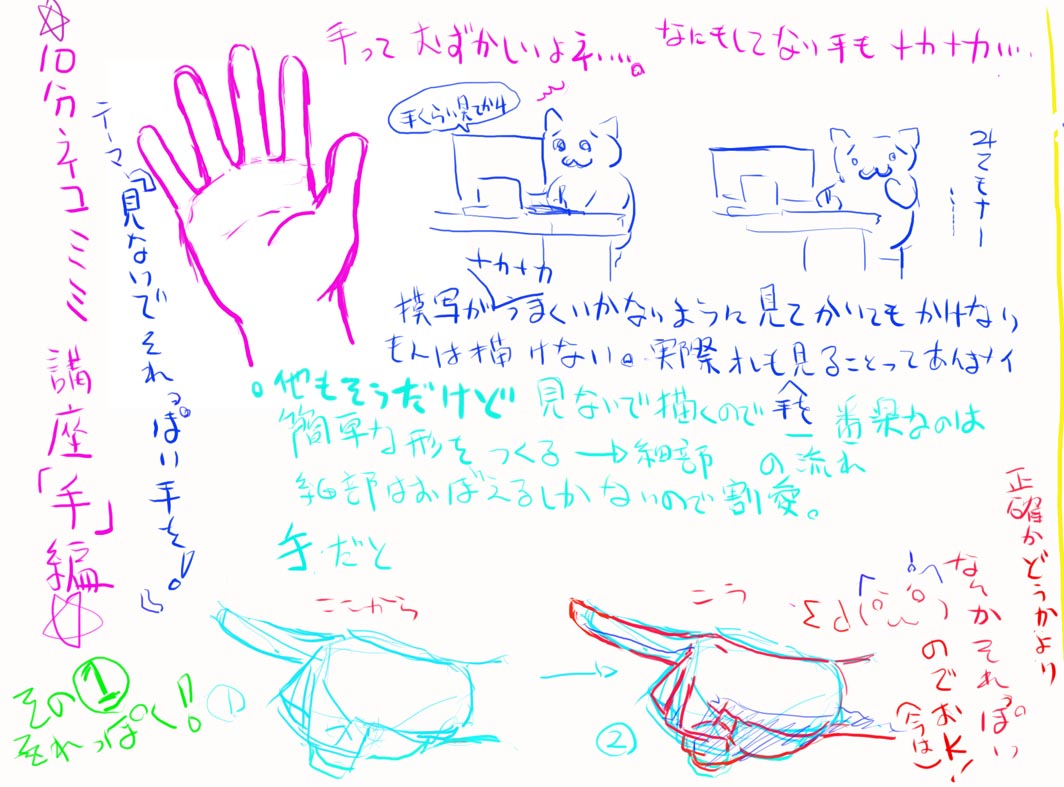 ☆10分ネコミミ講座「手」編☆
手ってむずかしいよネ…。
なにもしてない手もナカナカ…
テーマ
『見ないでそれっぽい手を!』
手くらい見てかけ
みてもナー…
ナカナカ
模写がうまくいかないように見てかいてもかけない
もんは描けない。実際オレも見ることってあんまナイ
。他もそうだけど見ないで描くので手を一番楽なのは
簡単な形をつくる→細部の流れ
細部はおぼえるしかないので割愛。
手だと
ここから
→
こう
①
②
その①
それっぽく!!
正確かどうかより
なんかそれっぽい
のでおK!
(今は)
Σd(°ω°)